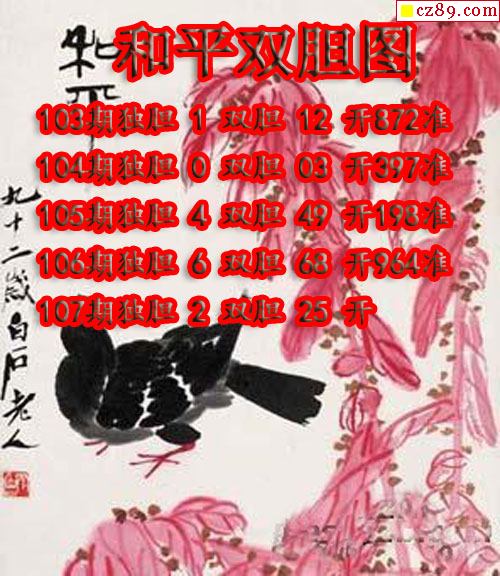 cz89.com
和平双胆图
和平
103期独胆 1 双胆 12 开872准
104期独胆 0 双胆 03 开397准
105期独胆 4 双胆 49 开198准
106期独胆 6 双胆 68 开964准
107期独胆 2 双胆 25 开
九十二岁白石老人